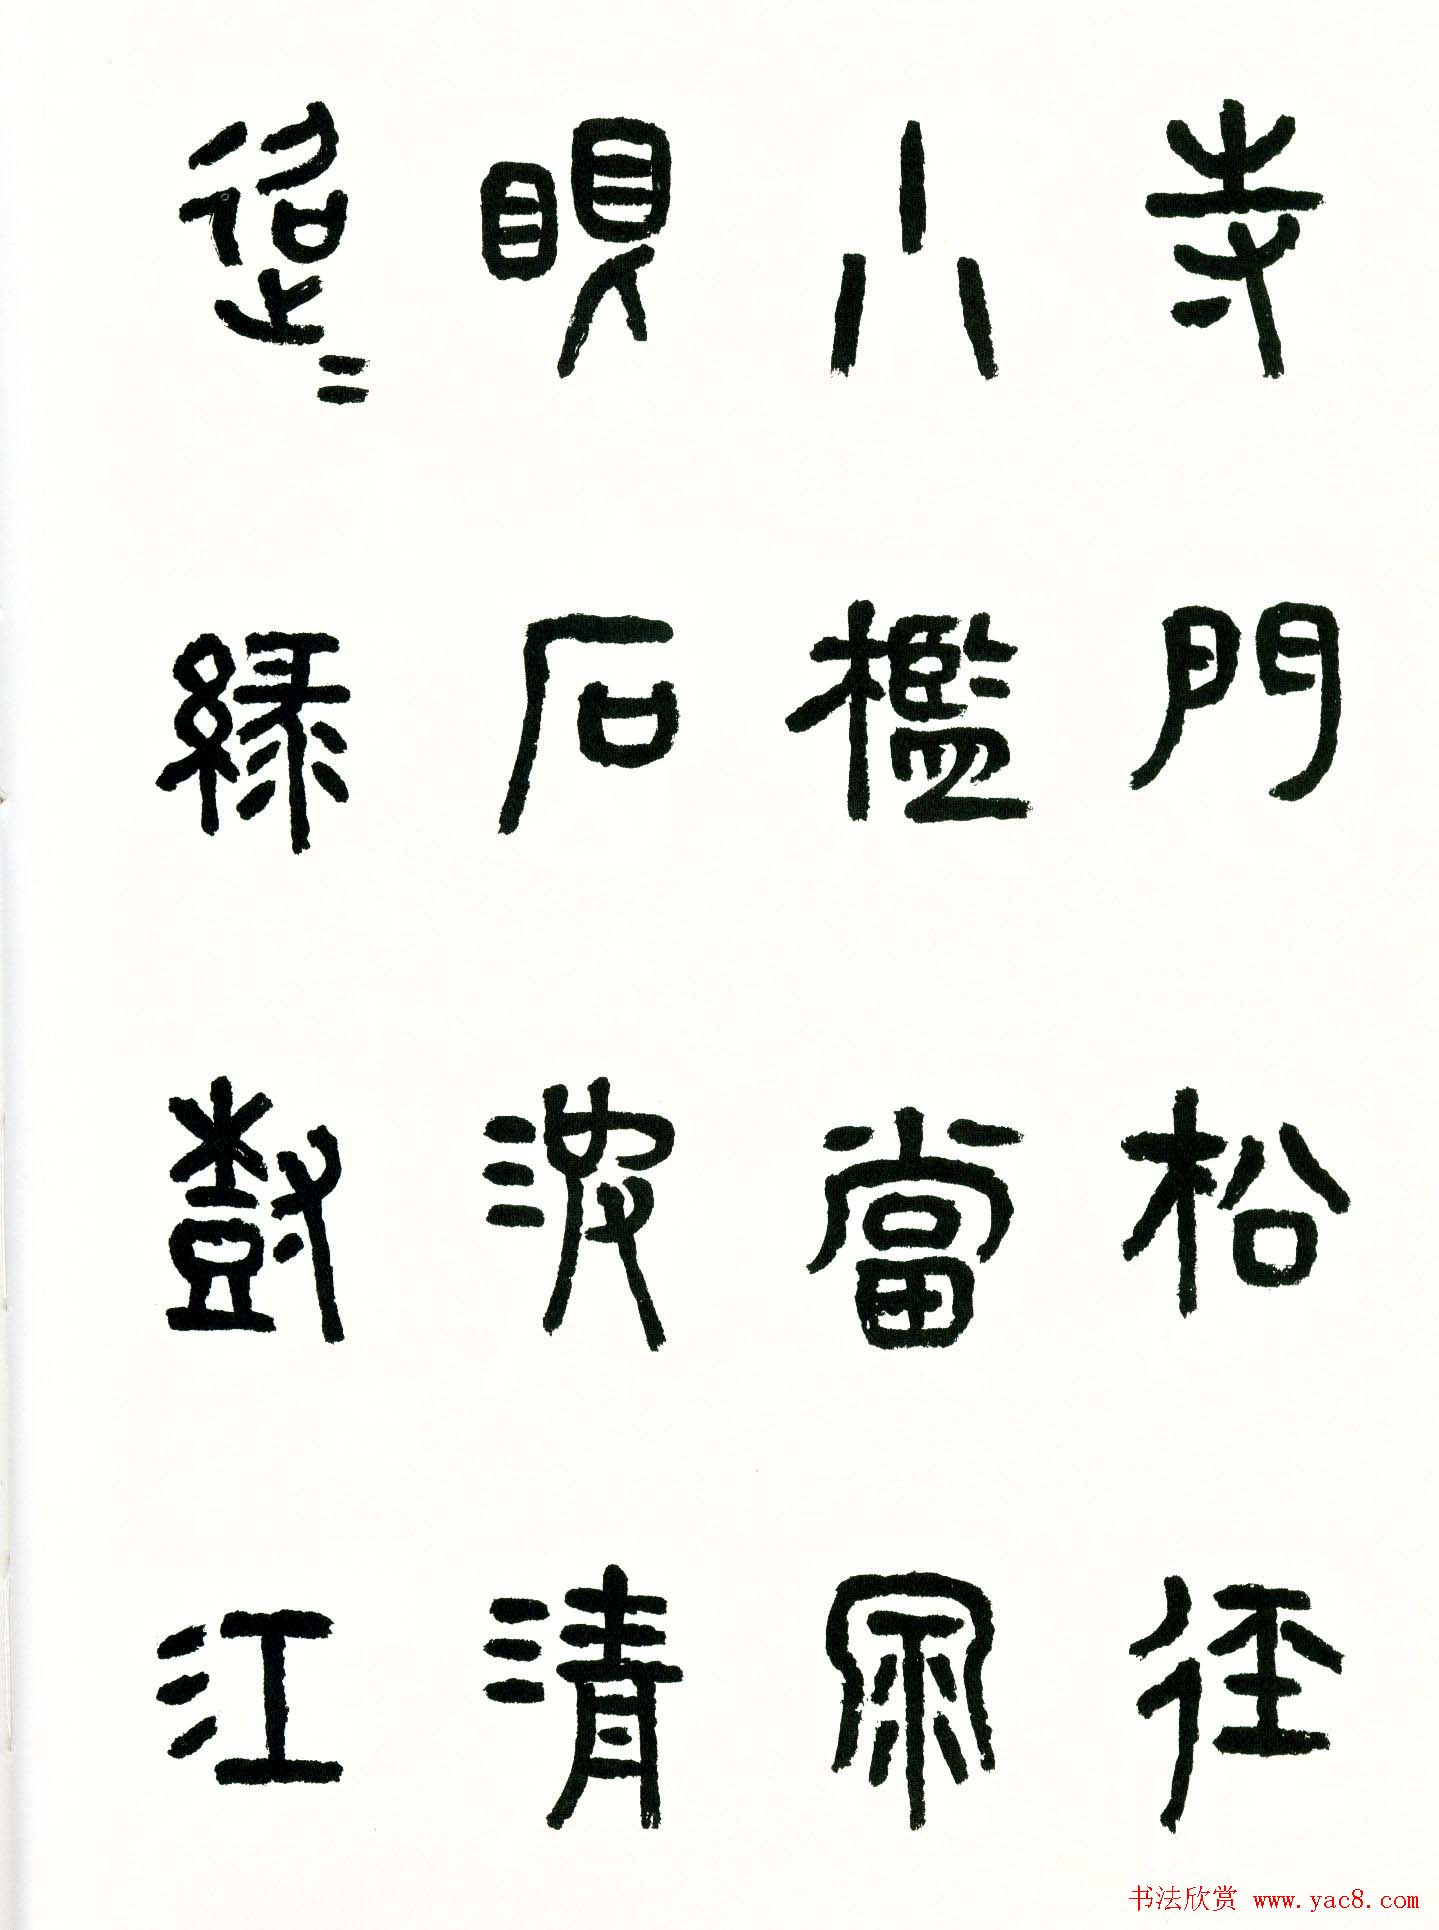 寺門松徑
小檻當泉
眼石波清
迢〻綠樹江
书法欣赏 www.yac8.com